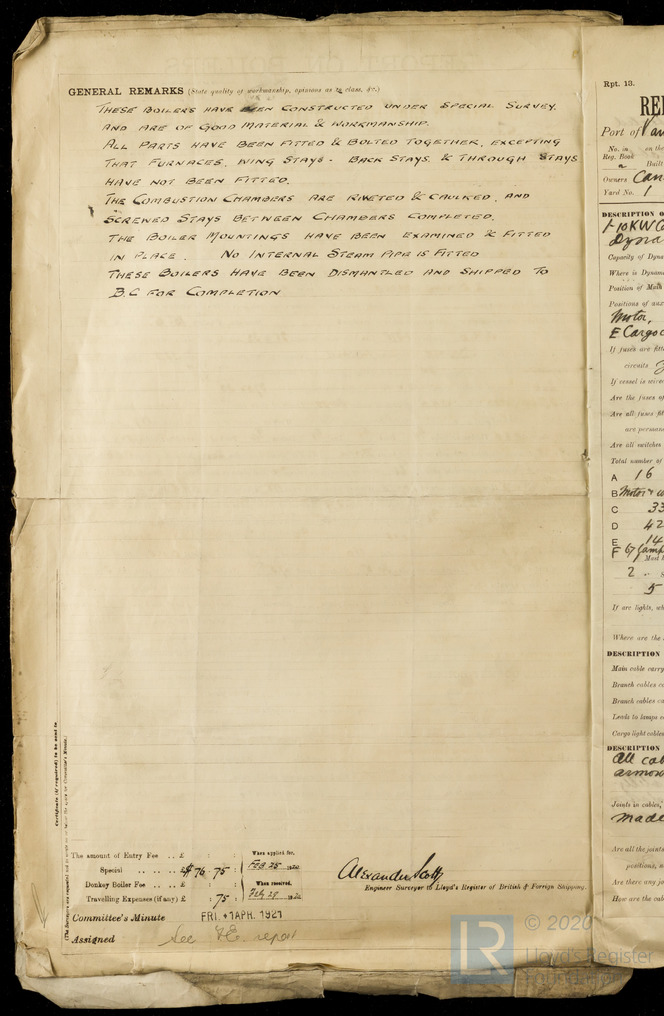 GENERAL REMARKS (State quality of workmanship, opinions as to class, &c.)
THESE BOILERS HAVE BEEN CONSTRUCTED UNDER SPECIAL SURVEY,
AND ARE OF GOOD MATERIAL & WORKMANSHIP.
ALL PARTS HAVE BEEN FITTED & BOLTED TOGETHER, EXCEPTING
THAT FURNACES, WING STAYS - BACK STAYS, & THROUGH STAYS
HAVE NOT BEEN FITTED.
THE COMBUSTION CHAMBERS ARE RIVETED & CAULKED, AND
SCREWED STAYS BETWEEN CHAMBERS COMPLETED.
THE BOILER MOUNTINGS HAVE BEEN EXAMINED & FITTED
IN PLACE. NO INTERNAL STEAM PIPE IS FITTED
THESE BOILERS HAVE BEEN DISMANTLED AND SHIPPED TO
B.C FOR COMPLETION
Certificate (if required) to be sent to
The amount of Entry Fee .. £ : : When applied for,
Special .. .. £ $ 76 . 75 : FEB 25 1920
Donkey Boiler Fee .. .. £ : : When received,
Travelling Expenses (if any) £ : 75 : 1920
Alexander Scott
Engineer Surveyor to Lloyd's Register of British & Foreign Shipping.
Committee's Minute FRI. 1 APR. 1921
Assigned See F.E. report
Rpt. 13.
Port of Van
No. in on the
Reg. Book
Built
Owners Can
Yard No. 1
DESCRIPTION O
1-10KW
Dyna
Capacity of Dyna
Where is Dynam
Position of Main
Positions of aux
Motor,
E Cargo
If fuses are fitte
circuits
If vessel is wired
Are the fuses of
Are all fuses fit
are permane
Are all switches
Total number of
A 16
B Motor &
C 33
D 42
E 14
F 67 lamp
2 ..
5
If arc lights, wh
Where are the
DESCRIPTION
Main cable carry
Branch cables ca
Branch cables ca
Leads to lamps c
Cargo light cables
DESCRIPTION
All cab
armou
Joints in cables,
made
Are all the joints
positions,
Are there any jo
How are the cab
© 2020
LR
Lloyd's Register
Foundation